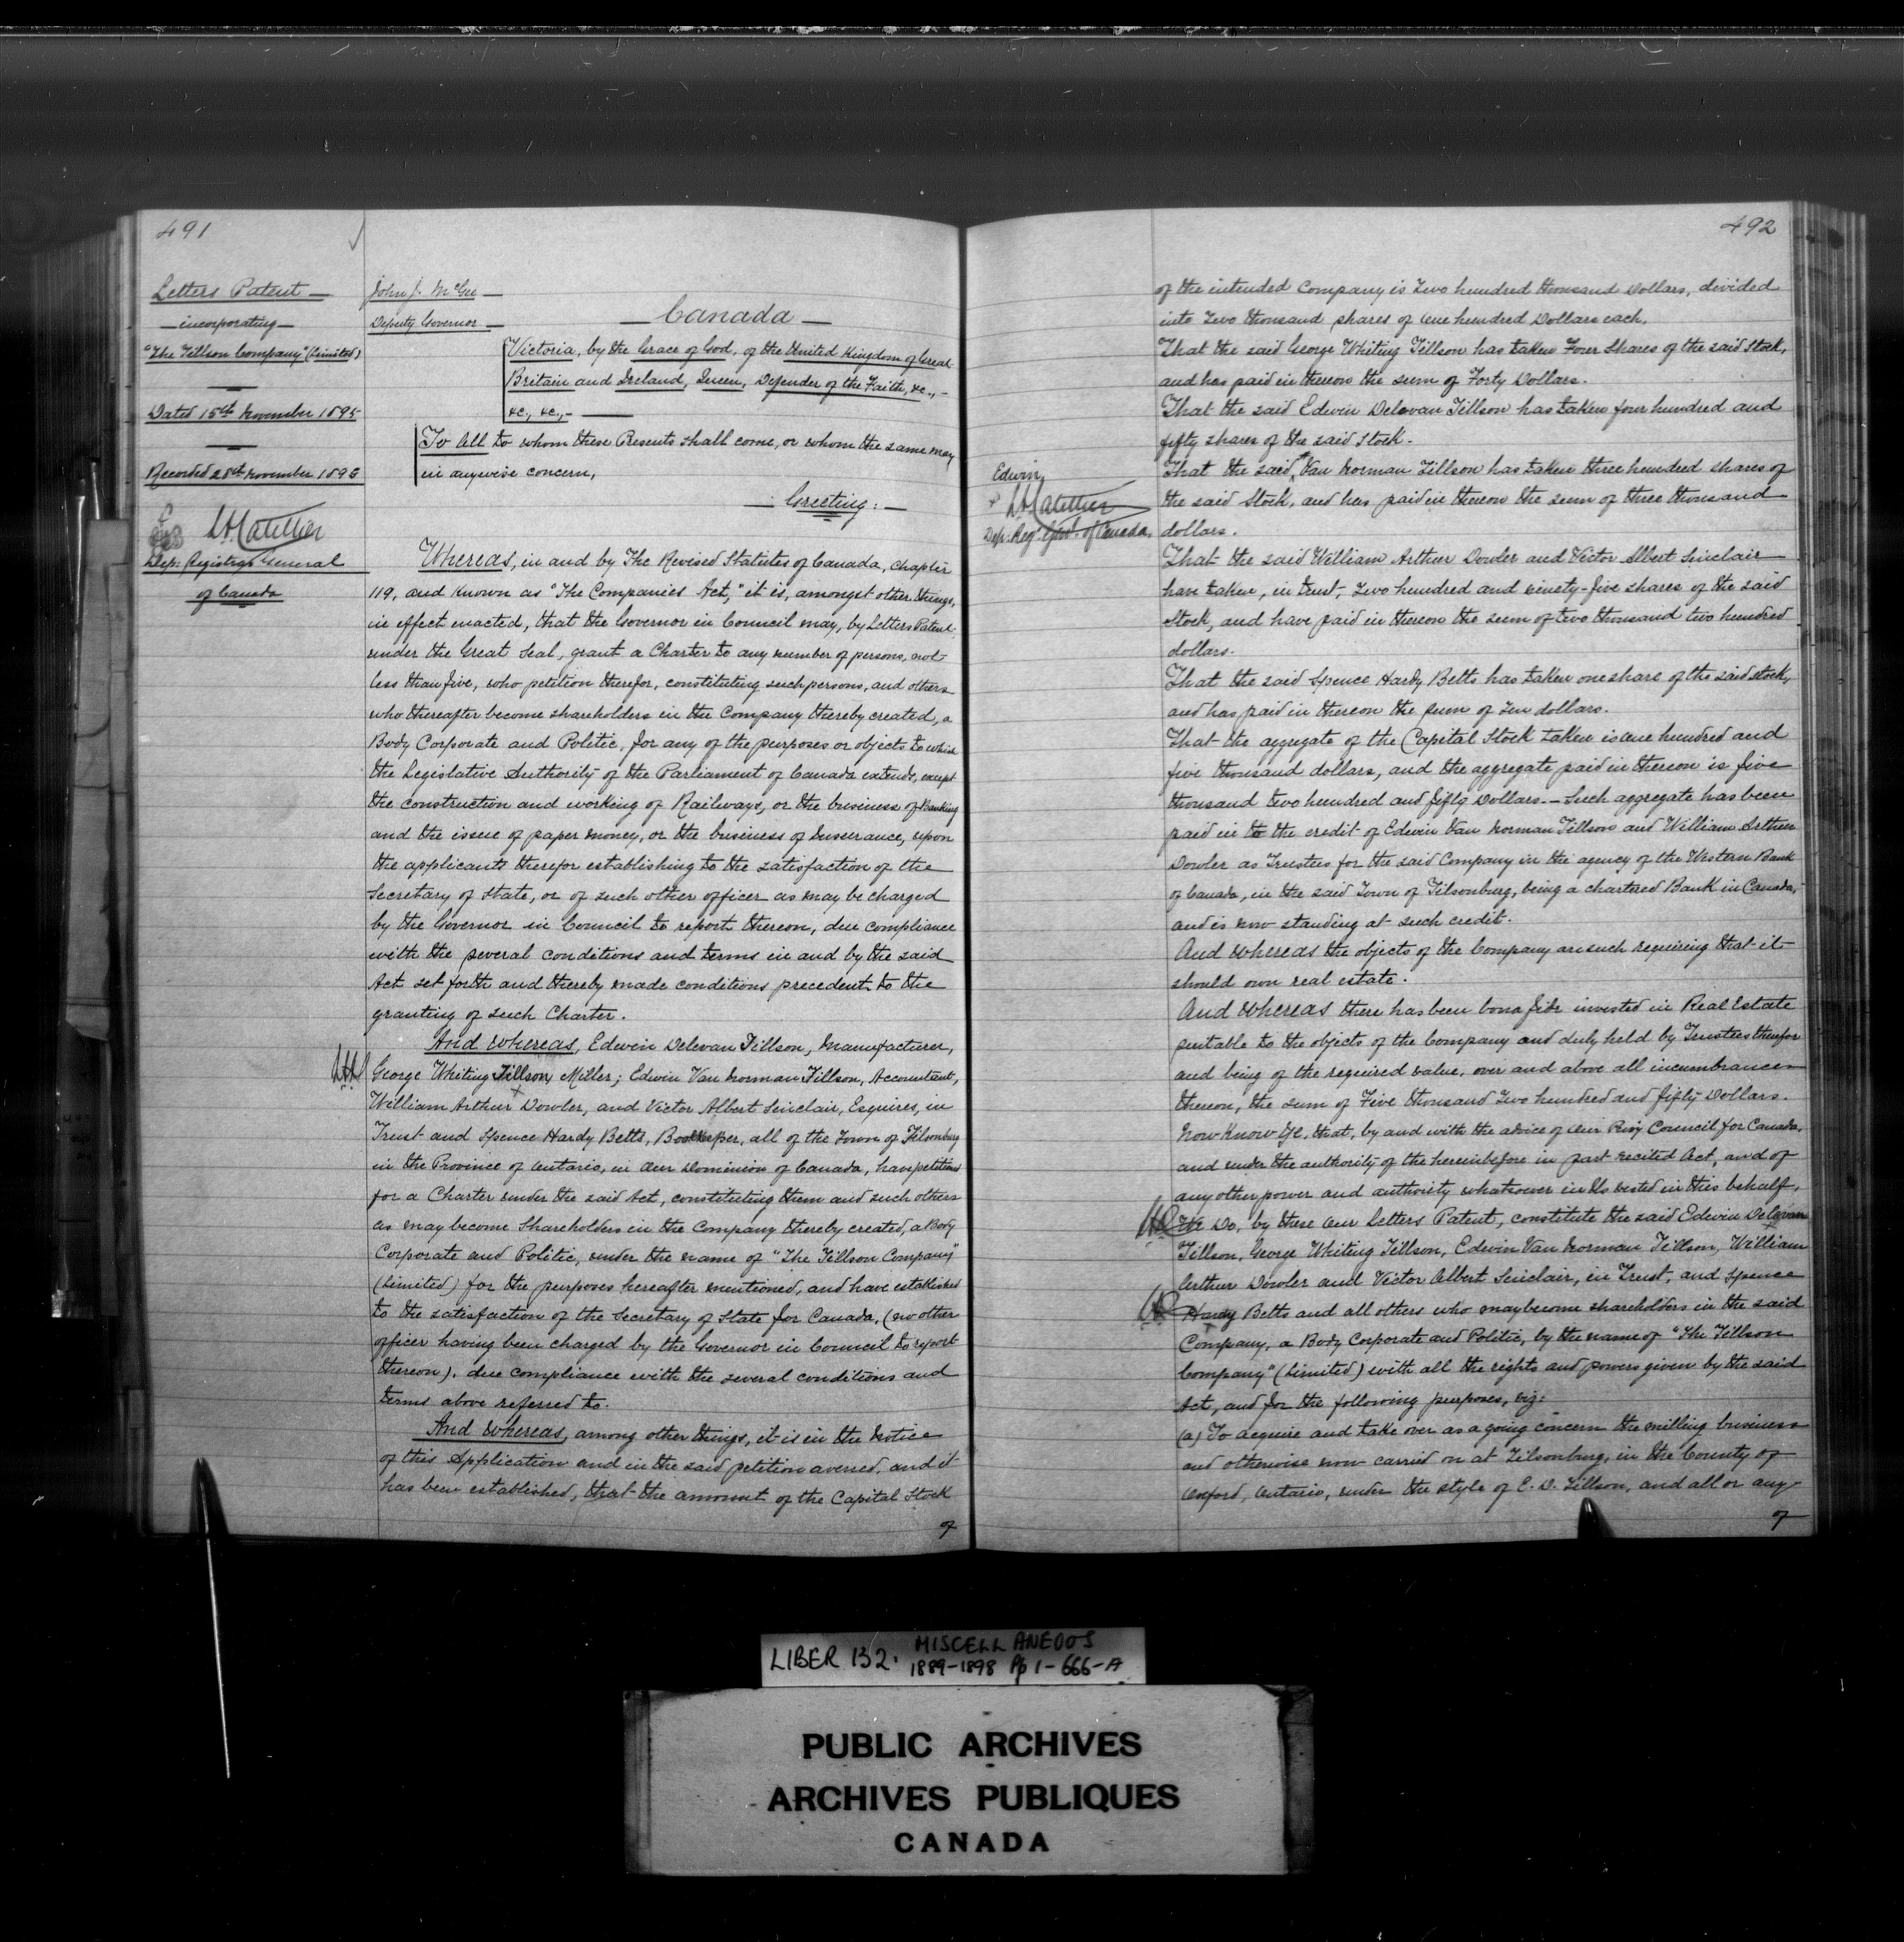 491
Letters Patent —
— incorporating —
"The Tillson Company" (Limited)
Dated 15th November 1895
Recorded 28th November 1895
L A Catellier
Dep. Registrar General
of Canada
John J. McGee —
Deputy Governor —
— Canada —
Victoria, by the Grace of God, of the United Kingdom of Great
Britain and Ireland, Queen, Defender of the Faith, &c., –
&c., &c., –
To All to whom these Presents shall come, or whom the same may
in anywise concern,
— Greeting: —
Whereas, in and by The Revised Statutes of Canada, chapter
119, and known as "The Companies Act," it is, amongst other things,
in effect enacted, that the Governor in Council may, by Letters Patent
under the Great Seal, grant a Charter to any number of persons, not
less than five, who petition therefor, constituting such persons, and others
who thereafter become shareholders in the Company thereby created, a
Body Corporate and Politic, for any of the purposes or objects to which
the Legislative Authority of the Parliament of Canada extends, except
the construction and working of Railways, or the business of Banking
and the issue of paper money, or the business of Insurance, upon
the applicants therefor establishing to the satisfaction of the
Secretary of State, or of such other officer as may be charged
by the Governor in Council to report thereon, due compliance
with the several conditions and terms in and by the said
Act set forth and thereby made conditions precedent to the
granting of such Charter.
And whereas, Edwin Delevan Tillson, Manufacturer,
George Whiting Tillson, Miller; Edwin Van Norman Tillson, Accountant,
William Arthur Dowler, and Victor Albert Sinclair, Esquires, in
Trust and Spence Hardy Betts, Bookkeeper, all of the Town of Tilsonburg
in the Province of Ontario, in Our Dominion of Canada, have petitioned
for a Charter under the said Act, constituting them and such others
as may become Shareholders in the Company thereby created, a Body
Corporate and Politic, under the name of "The Tillson Company"
(Limited) for the purposes hereafter mentioned, and have established
to the satisfaction of the Secretary of State for Canada, (no other
officer having been charged by the Governor in Council to report
thereon), due compliance with the several conditions and
terms above referred to.
And whereas, among other things, it is in the Notice
of this Application and in the said petition averred, and it
has been established, that the amount of the Capital Stock
of
492
of the intended Company is Two hundred thousand Dollars, divided
into Two thousand shares of One hundred Dollars each.
That the said George Whiting Tillson has taken Four Shares of the said Stock,
and has paid in thereon the sum of Forty Dollars.
That the said Edwin Delevan Tillson has taken four hundred and
fifty shares of the said Stock.
Edwin
L A Catellier
Dep. Reg. Genl. of Canada
That the said Van Norman Tillson has taken three hundred shares of
the said Stock, and has paid in thereon the sum of three thousand
dollars.
That the said William Arthur Dowler and Victor Albert Sinclair
have taken, in trust, Two hundred and ninety-five shares of the said
Stock, and have paid in thereon the sum of two thousand two hundred
dollars.
That the said Spence Hardy Betts has taken one share of the said stock,
and has paid in thereon the sum of Ten dollars.
That the aggregate of the Capital Stock taken is one hundred and
five thousand dollars, and the aggregate paid in thereon is five
thousand two hundred and fifty Dollars. – Such aggregate has been
paid in to the credit of Edwin Van Norman Tillson and William Arthur
Dowler as Trustees for the said Company in the agency of the Western Bank
of Canada, in the said Town of Tilsonburg, being a chartered Bank in Canada,
and is now standing at such credit.
And whereas the objects of the Company are such requiring that it
should own real estate.
And whereas there has been bona fide invested in Real Estate
suitable to the objects of the Company and duly held by Trustees therefor
and being of the required value, over and above all incumbrances
thereon, the sum of Five thousand Two hundred and fifty Dollars.
Now Know Ye, that, by and with the advice of Our Privy Council for Canada,
and under the authority of the hereinbefore in part recited Act, and of
any other power and authority whatsoever in Us vested in this behalf,
We Do, by these Our Letters Patent, constitute the said Edwin Delevan
Tillson, George Whiting Tillson, Edwin Van Norman Tillson, William
Arthur Dowler and Victor Albert Sinclair, in Trust, and Spence
Hardy Betts and all others who may become shareholders in the said
Company, a Body Corporate and Politic, by the name of "The Tillson
Company" (Limited) with all the rights and powers given by the said
Act, and for the following purposes, viz:
(a) To acquire and take over as a going concern the milling business
and otherwise now carried on at Tilsonburg, in the County of
Oxford, Ontario, under the style of E. D. Tillson, and all or any
of
LIBER 132. MISCELLANEOUS
1889–1898 Pp 1–666–A
PUBLIC ARCHIVES
ARCHIVES PUBLIQUES
CANADA